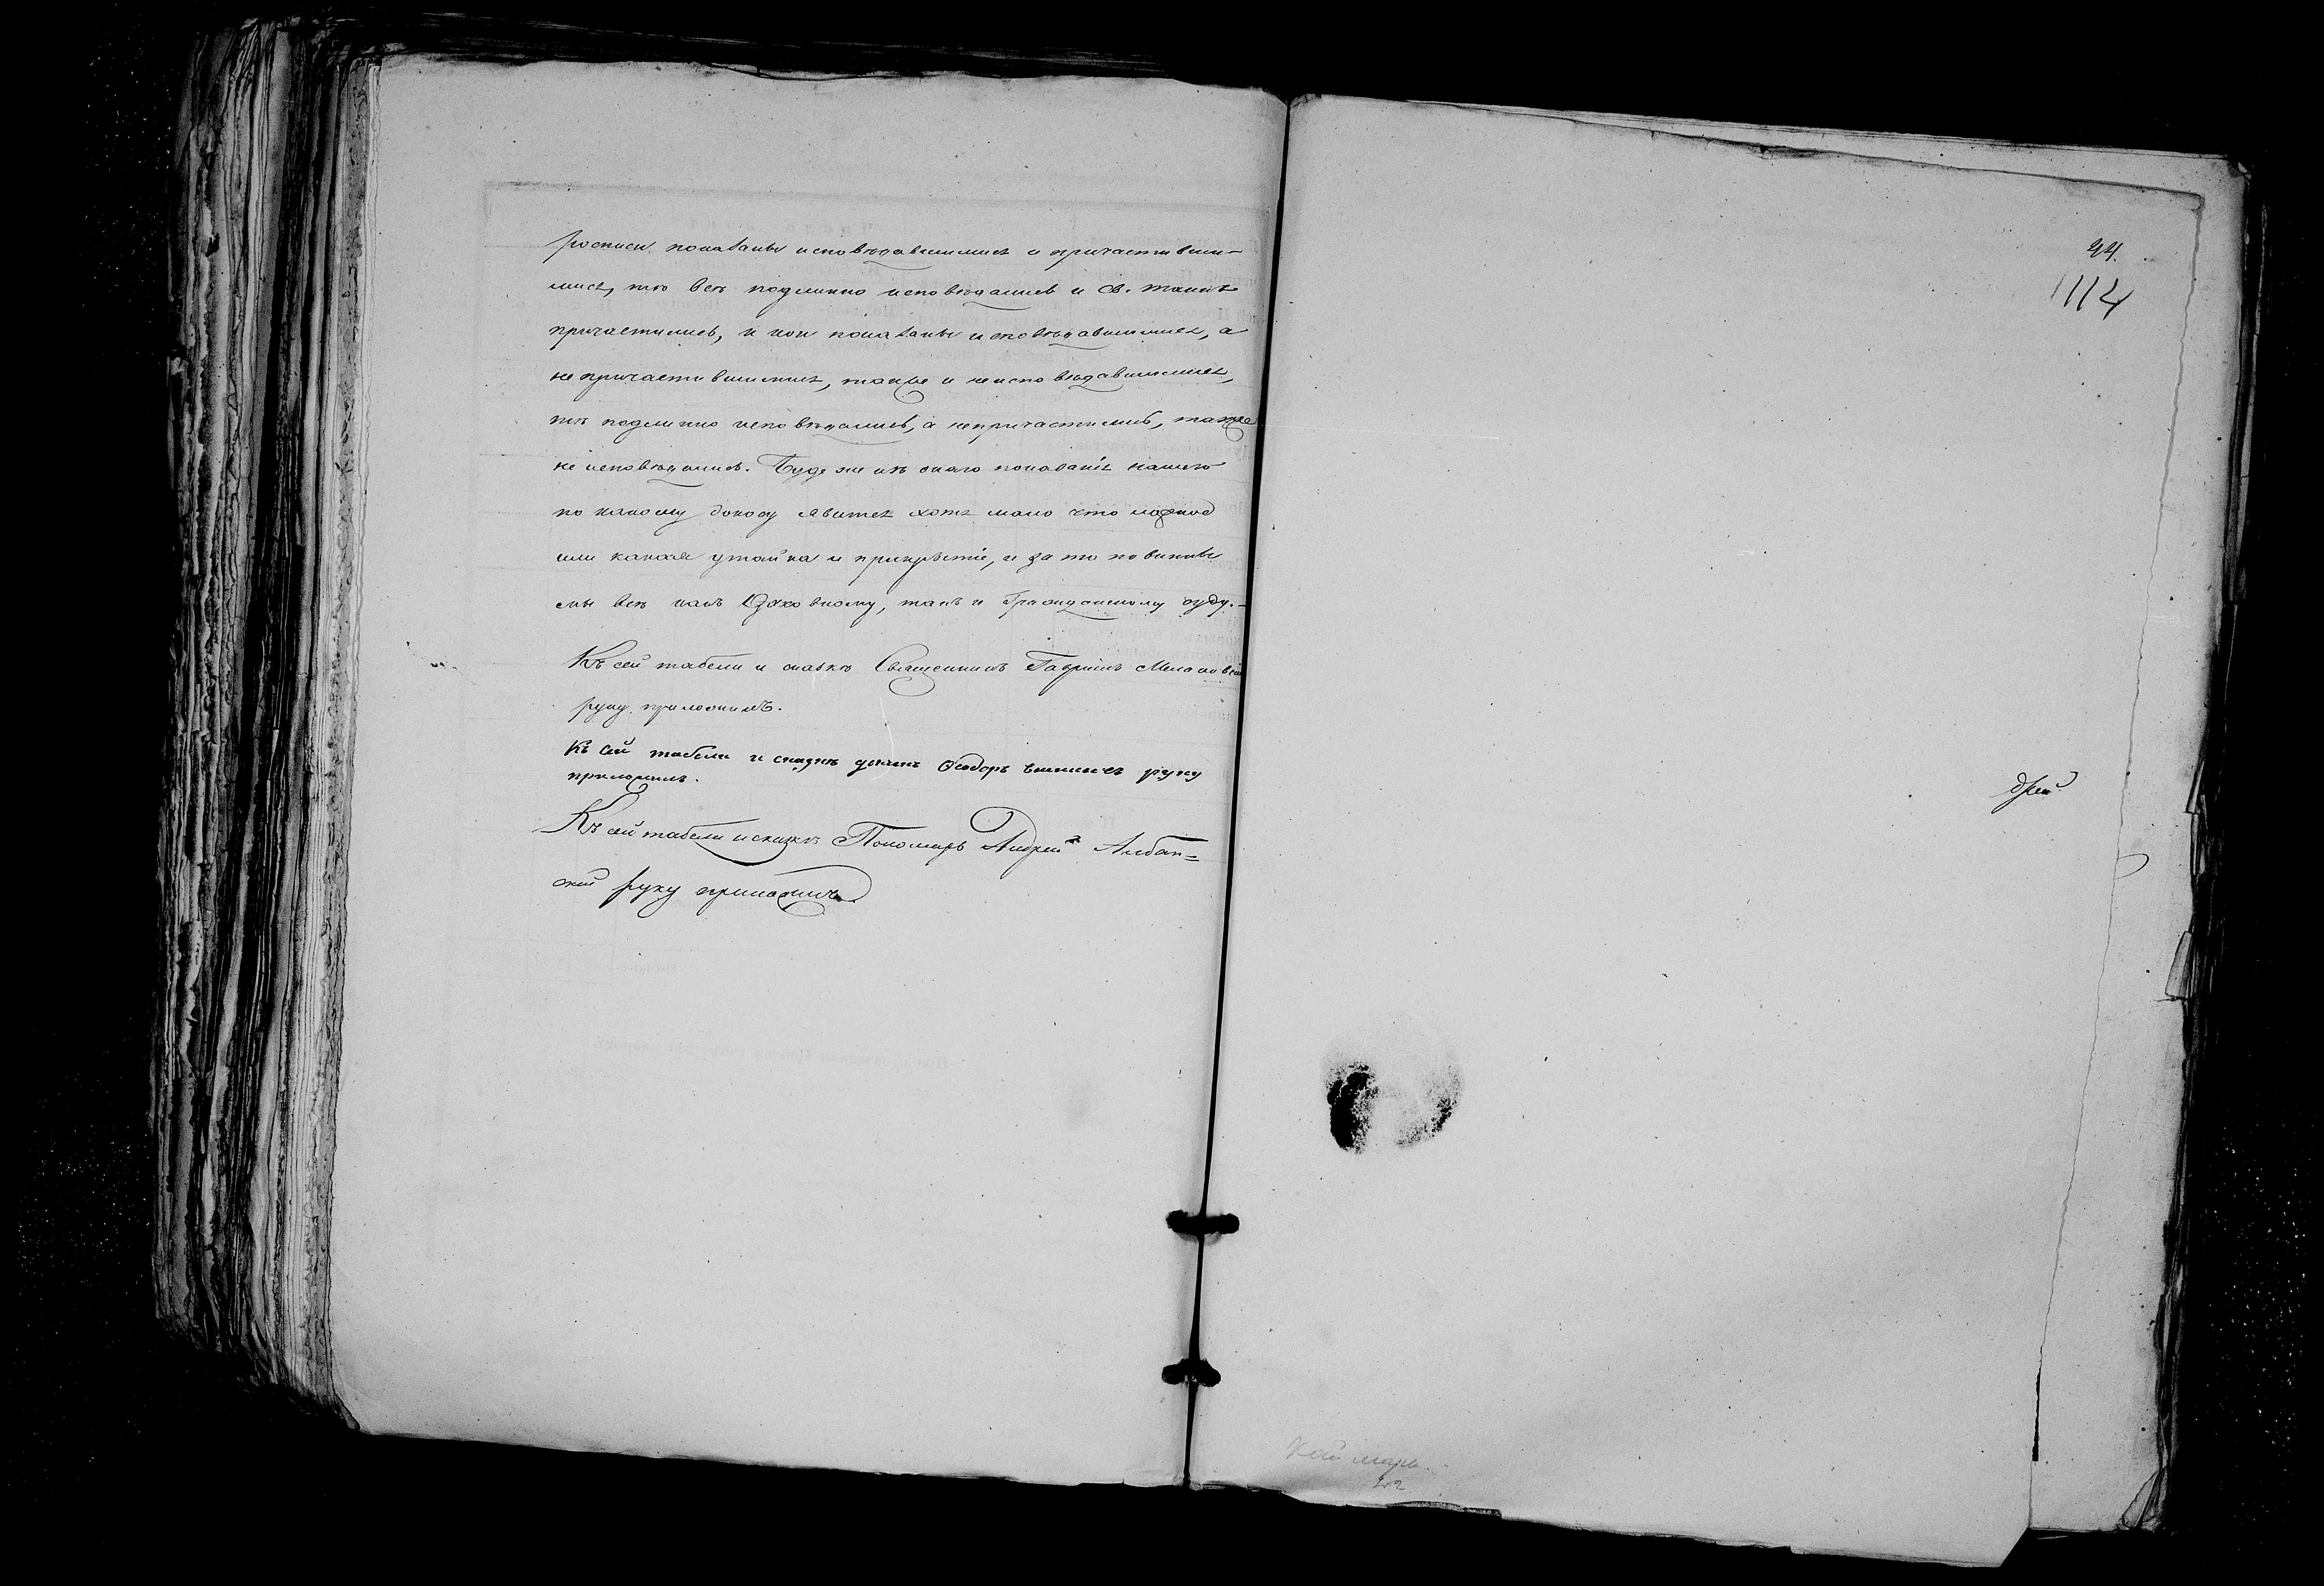 росписи показаны исповѣдавшимися и причастивши-
мися, тѣ всѣ подлинно исповѣдались и Св. таинъ
причастились, и кои показаны исповѣдавшимися, а
не причастившимися, также и неисповѣдавшимися,
тѣ подлинно исповѣдались, а непричастились, также
не исповѣдались. Буде же изъ онаго показанія нашего
по какому доносу явится хотя мало что ложное
или какая утайка и прикрытіе, и за то повинны
мы всѣ какъ Духовному, такъ и Гражданскому суду.-
Къ сей табели и сказкѣ Священникъ Гавріилъ
руку приложилъ.
Къ сей табели и сказкѣ дьячекъ Ѳеодоръ руку
приложилъ.
Къ сей табели и сказкѣ Пономарь Андрей Албан=
ской руку приложилъ
44.
1114